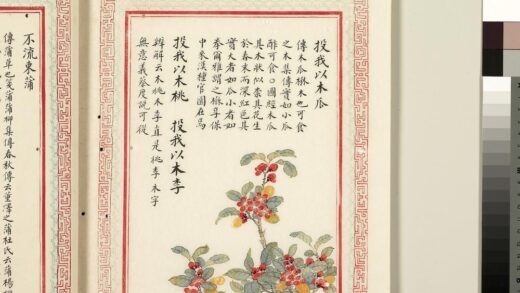 投我以木瓜
傳木瓜楙木也可食
之木集傳實如小瓜
酢可食○圖經木瓜
其木狀似柰其花生
於春末而深紅色其
實大者如瓜小者如
拳爾雅謂之楙享保
中來漢種官園在焉
投我以木桃　投我以木李
辨解云木桃木李直是桃李木字
無意義是說可從
不流東蒲
傳蒲草也箋蒲蒲柳集傳春秋傳云董澤之蒲杜氏云蒲楊